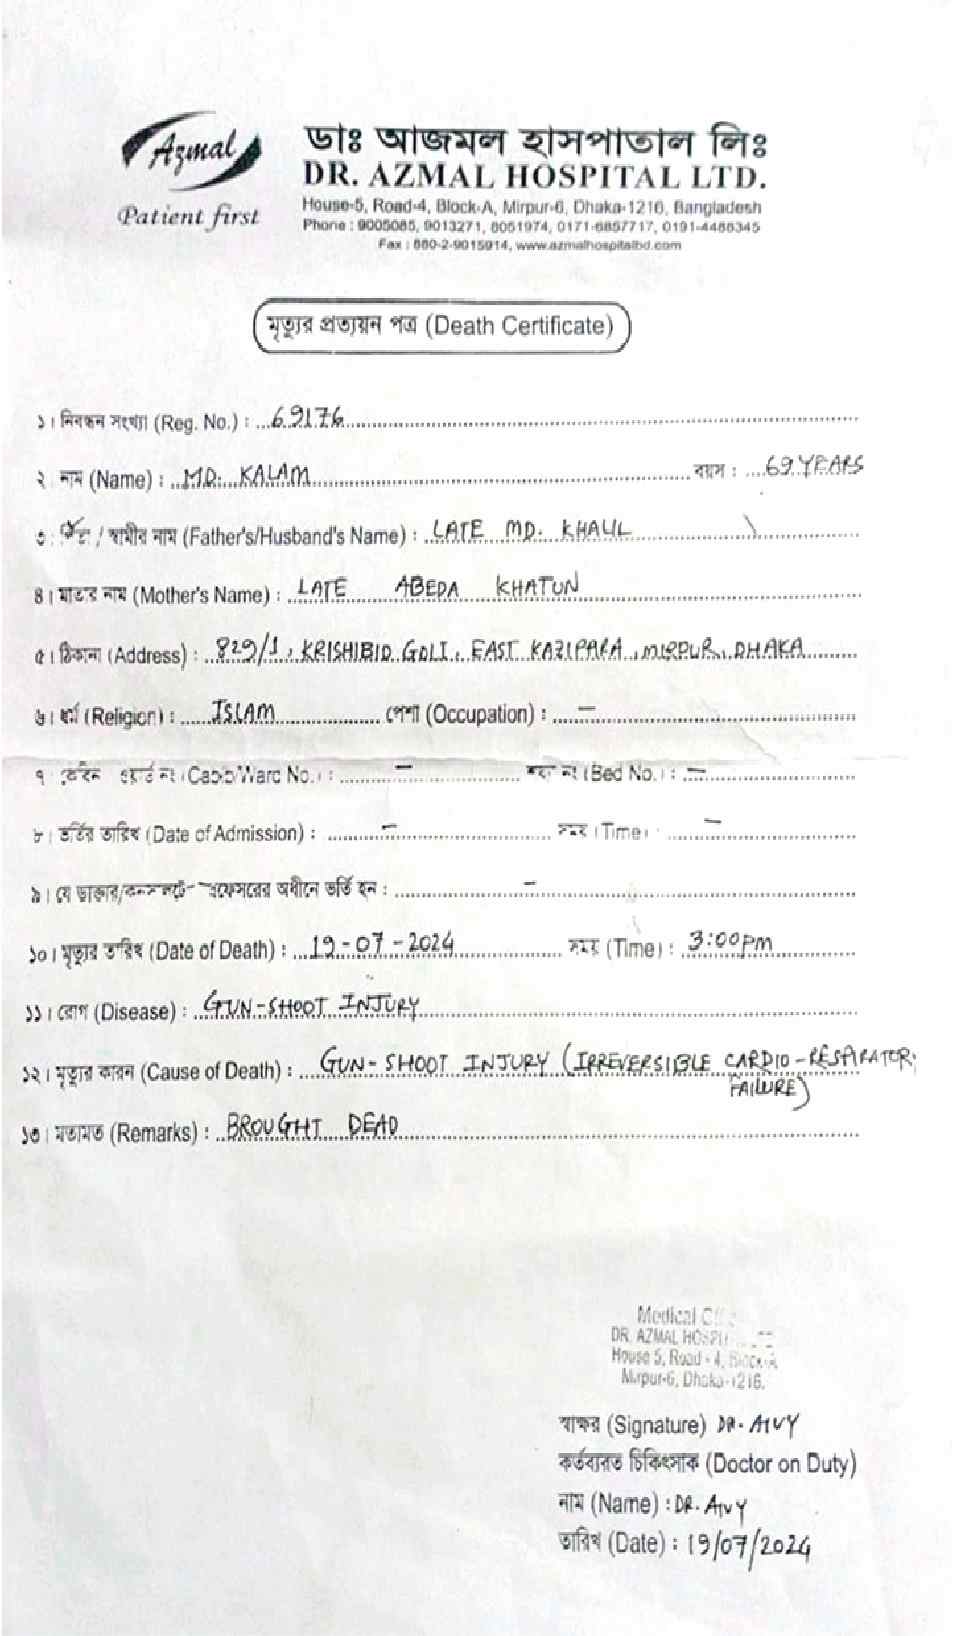 Azmal
Patient first
ডাঃ আজমল হাসপাতাল লিঃ
DR. AZMAL HOSPITAL LTD.
House-5, Road-4, Block-A, Mirpur-6, Dhaka-1216, Bangladesh
Phone : 9005085, 9013271, 8051974, 0171-6857717, 0191-4486345
Fax : 880-2-9015914, www.azmalhospitalbd.com
মৃত্যুর প্রত্যয়ন পত্র (Death Certificate)
১। নিবন্ধন সংখ্যা (Reg. No.) : 69176
২। নাম (Name) : MD. KALAM বয়স : 69 YEARS
৩। / স্বামীর নাম (Father's/Husband's Name) : LATE MD. KHALIL
৪। মাতার নাম (Mother's Name) : LATE ABEDA KHATUN
৫। ঠিকানা (Address) : 829/1, KRISHIBID GOLI, EAST KAZIPARA, MIRPUR, DHAKA
৬। ধর্ম (Religion) : ISLAM পেশা (Occupation) : –
৭। কেবিন ওয়ার্ড নং (Cabin/Ward No.) : – নং (Bed No.) : –
৮। ভর্তির তারিখ (Date of Admission) : – সময় (Time) : –
৯। যে ডাক্তার/ প্রফেসরের অধীনে ভর্তি হন : –
১০। মৃত্যুর তারিখ (Date of Death) : 19-07-2024 সময় (Time) : 3:00pm
১১। রোগ (Disease) : GUN-SHOOT INJURY
১২। মৃত্যুর কারন (Cause of Death) : GUN-SHOOT INJURY (IRREVERSIBLE CARDIO-
FAILURE)
১৩। মতামত (Remarks) : BROUGHT DEAD
Medical
DR. AZMAL
House 5, Road - 4, Block-A
Mirpur-6, Dhaka-1216.
স্বাক্ষর (Signature) DR. AIVY
কর্তব্যরত চিকিৎসক (Doctor on Duty)
নাম (Name) : DR. AIVY
তারিখ (Date) : 19/07/2024